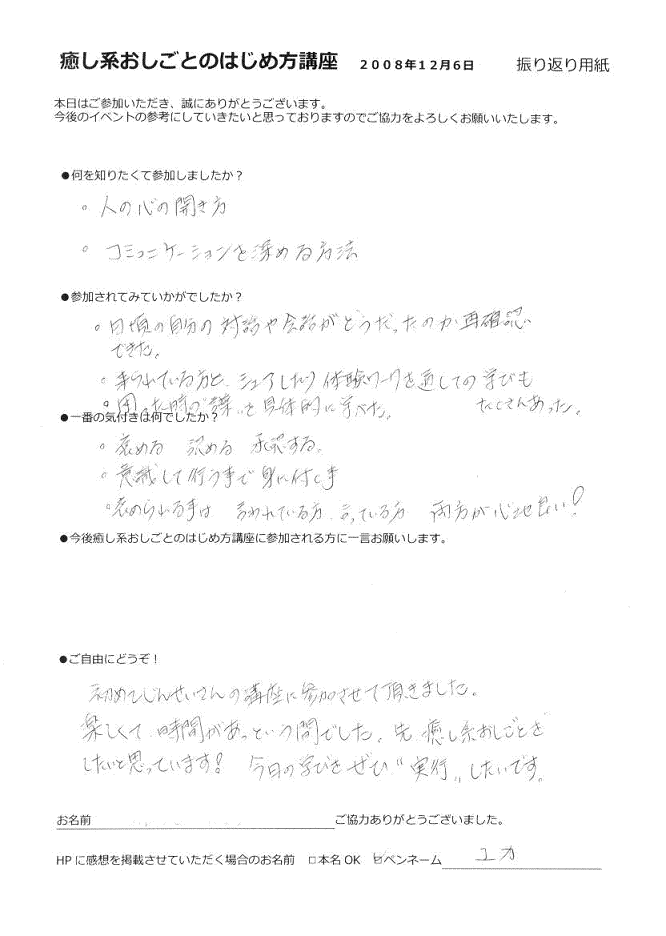 癒し系おしごとのはじめ方講座 2008年12月6日 振り返り用紙
本日はご参加いただき、誠にありがとうございます。
今後のイベントの参考にしていきたいと思っておりますのでご協力をよろしくお願いいたします。
●何を知りたくて参加しましたか？
。人の心の開き方
。コミュニケーションを深める方法
●参加されてみていかがでしたか？
。日頃の自分の対話や会話がどうだったのか再確認
できた。
。来られている方と、シェアしたり体験ワークを通しての学びも
たくさんあった。
。困った時の"褒"を具体的に学べた。
●一番の気付きは何でしたか？
。褒める 認める 承認する。
。意識して行う事で身に付く事
。褒められる事は 言われている方、言っている方 両方が心地良い！
●今後癒し系おしごとのはじめ方講座に参加される方に一言お願いします。
●ご自由にどうぞ！
初めてじんせいさんの講座に参加させて頂きました。
楽しくて、時間があっという間でした。先、癒し系おしごとを
したいと思っています！ 今日の学びをぜひ"実行"したいです。
お名前 ご協力ありがとうございました。
HPに感想を掲載させていただく場合のお名前 □本名OK ☑ペンネーム ユカ